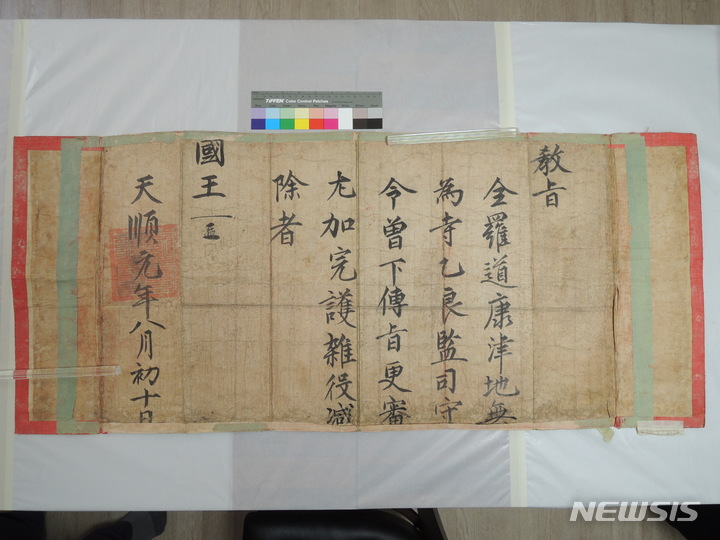 敎旨
全羅道康津地無
為寺乙良監司守
令曾下傳旨更審
尤加完護雜役減
除者
國王
天順元年八月初十日
TIFFEN Color Control Patches
NEWSIS